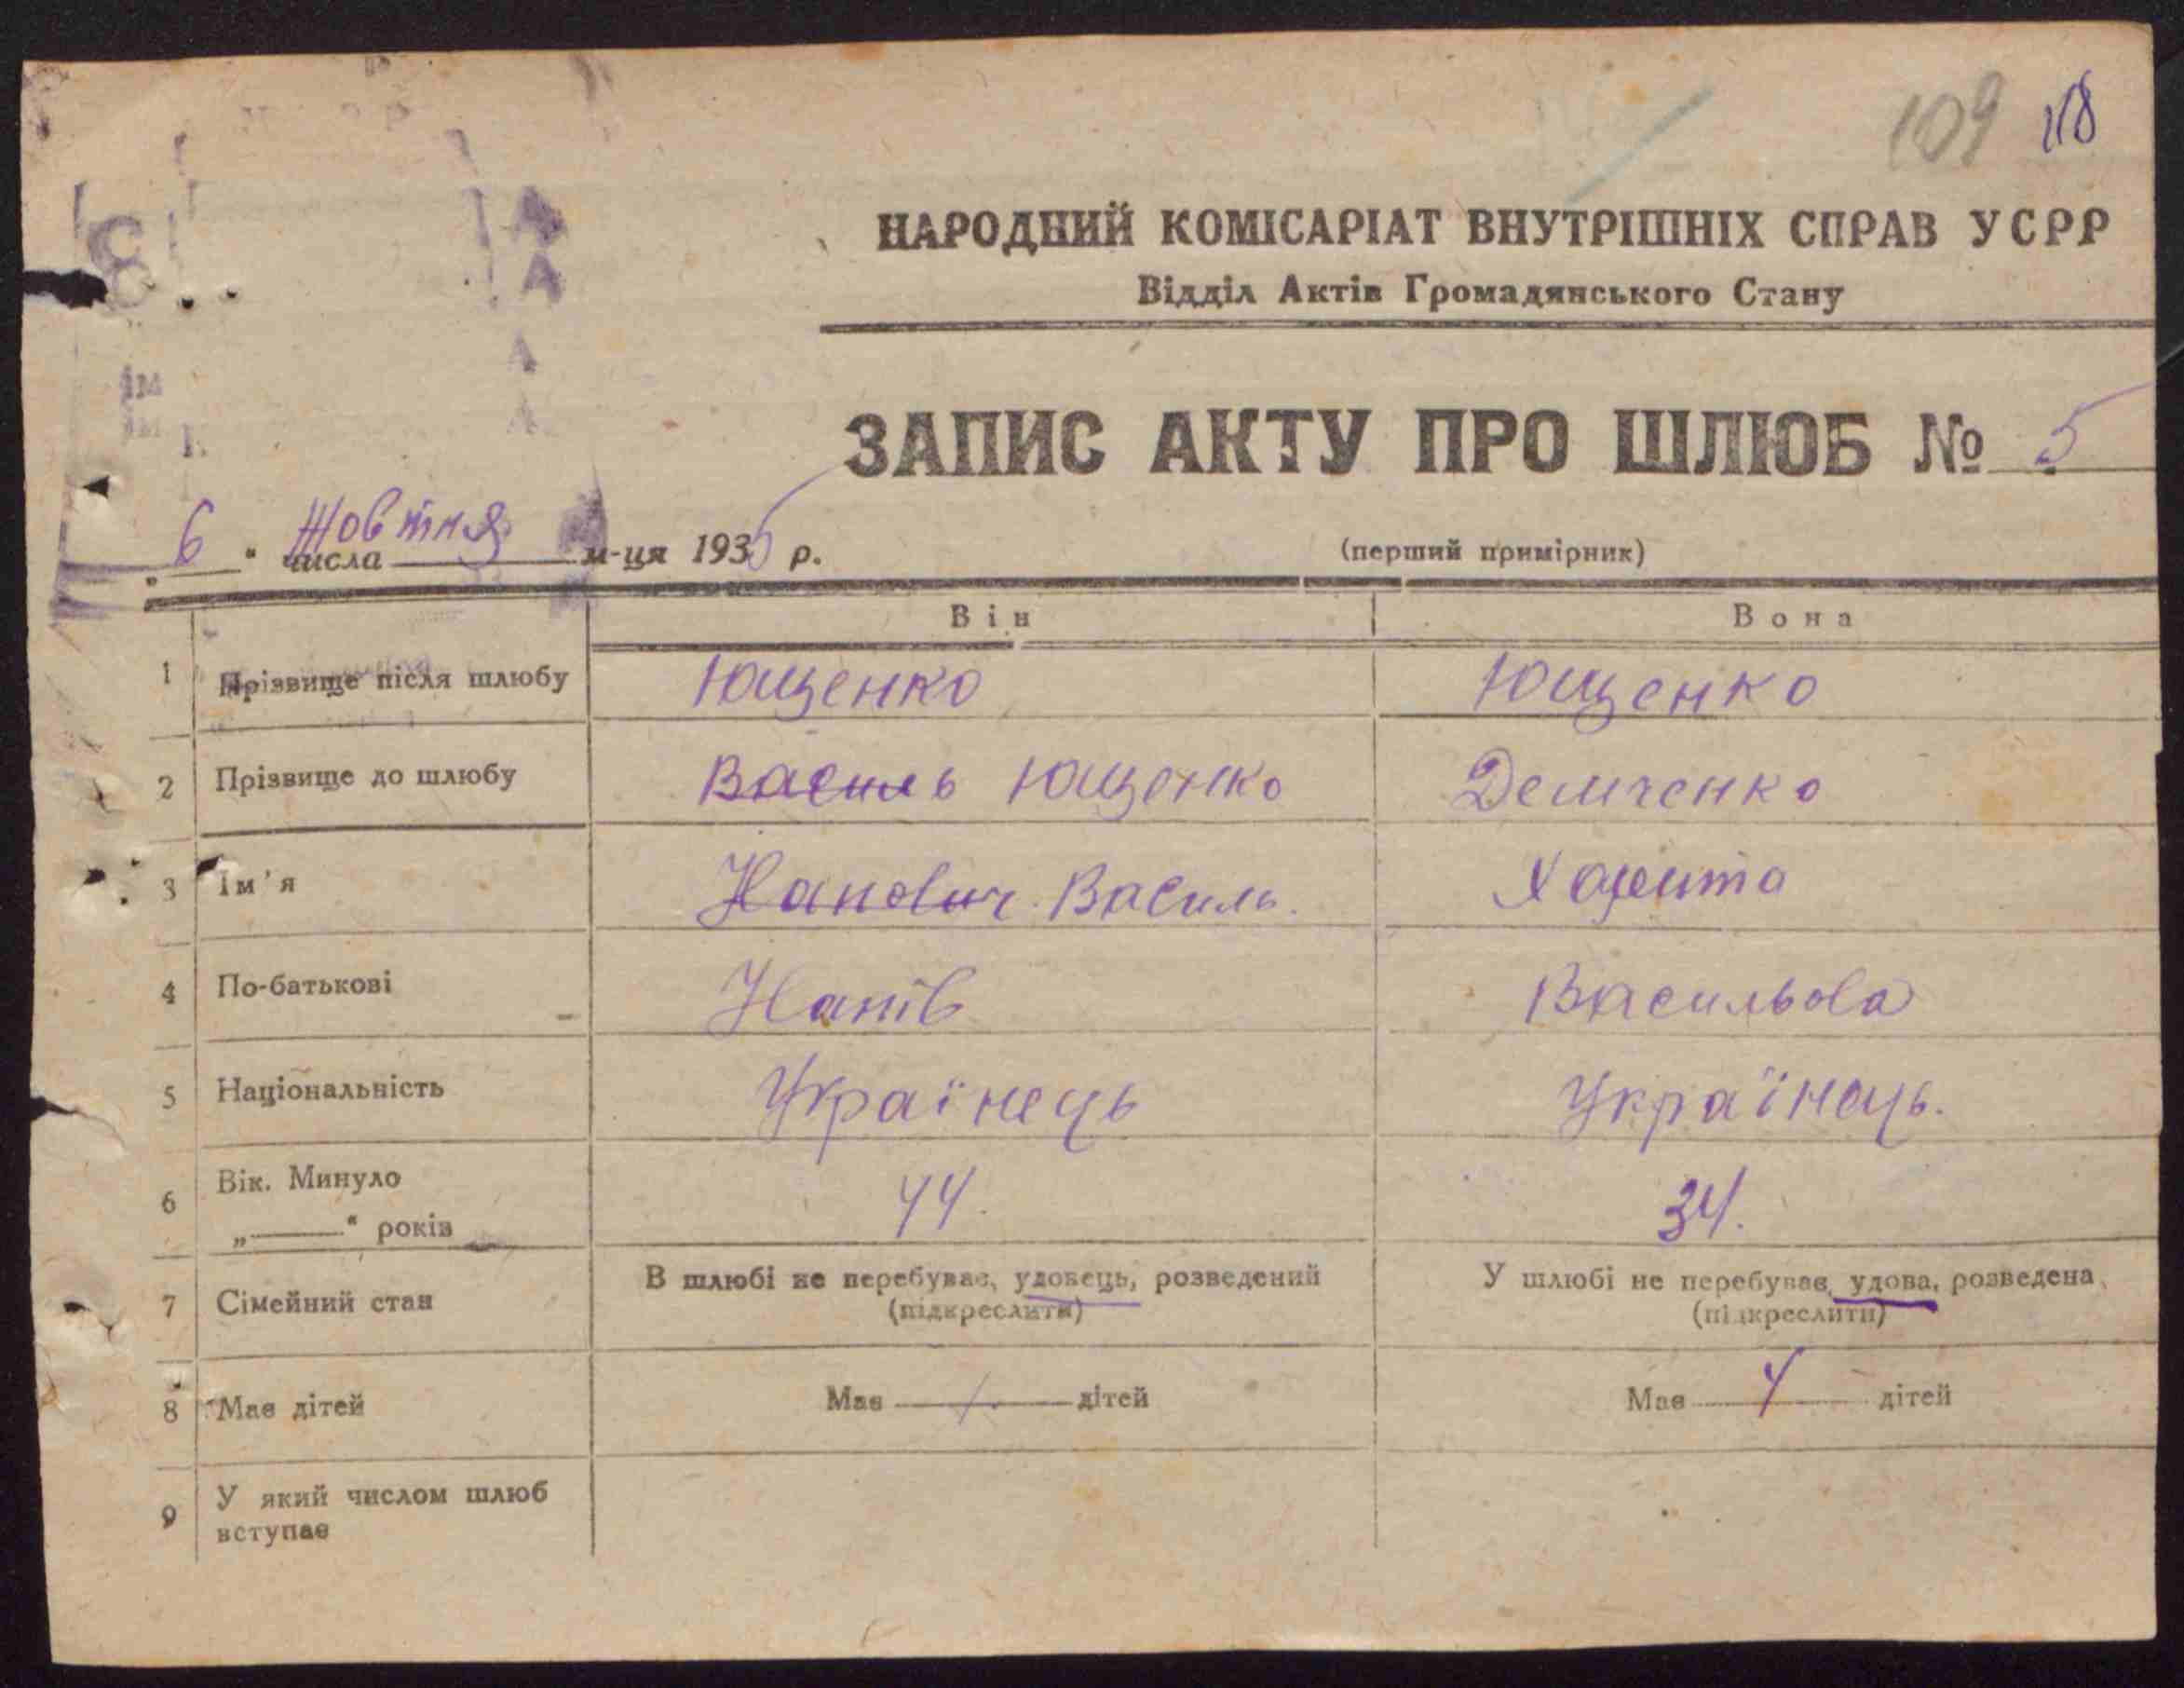 109 118
НАРОДНИЙ КОМІСАРІАТ ВНУТРІШНІХ СПРАВ УСРР
Відділ Актів Громадянського Стану
ЗАПИС АКТУ ПРО ШЛЮБ № 5
„ 6 “ числа Жовтня м-ця 1935 р.
(перший примірник)
Він Вона
1 Прізвище після шлюбу Ющенко Ющенко
2 Прізвище до шлюбу Василь Ющенко Демченко
3 Ім'я Василь. Харита
4 По-батькові Васильова
5 Національність Українець Українець.
6 Вік. Минуло 44. 34.
„——“ років
7 Сімейний стан В шлюбі не перебуває, удовець, розведений У шлюбі не перебуває, удова, розведена
(підкреслити) (підкреслити)
8 Має дітей Має дітей Має 4 дітей
9 У який числом шлюб
вступає